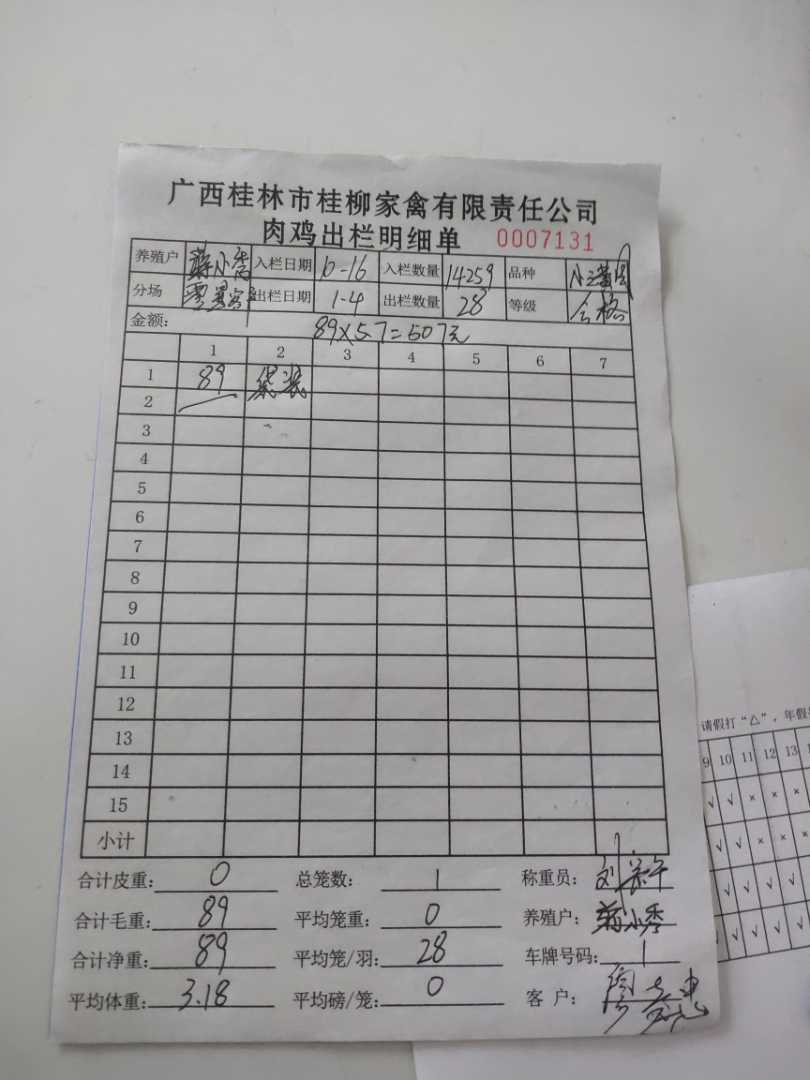 广西桂林市桂柳家禽有限责任公司
肉鸡出栏明细单 0007131
养殖户 蒋小秀 入栏日期 10-16 入栏数量 14259 品种
分场 出栏日期 1-4 出栏数量 28 等级 合格
金额: 89×5.7=507元
1 2 3 4 5 6 7
1 89 袋装
2
3
4
5
6
7
8
9
10
11
12
13
14
15
小计
合计皮重: 0 总笼数: 1 称重员:
合计毛重: 89 平均笼重: 0 养殖户: 蒋小秀
合计净重: 89 平均笼/羽: 28 车牌号码: 1
平均体重: 3.18 平均磅/笼: 0 客 户:
请假打“△”,年假
9 10 11 12 13
√ √ × × ×
√ √ × × ×
√ √ √ √
√ √ √ √ √